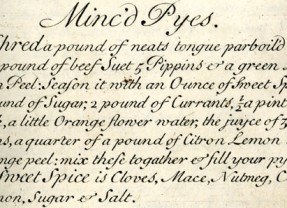 Minc'd Pyes.
hred a pound of neats tongue parboild
pound of beef Suet 5 Pippins & a green
n Peel: Season it with an Ounce of Sweet Sp
und of Sugar, 2 pound of Currants, ½ a pint
a little Orange flower water, the juyce of 3
ns, a quarter of a pound of Citron Lemon
nge peel: mix these togather & fill your py
Sweet Spice is Cloves, Mace, Nutmeg, C
mon, Sugar & Salt.